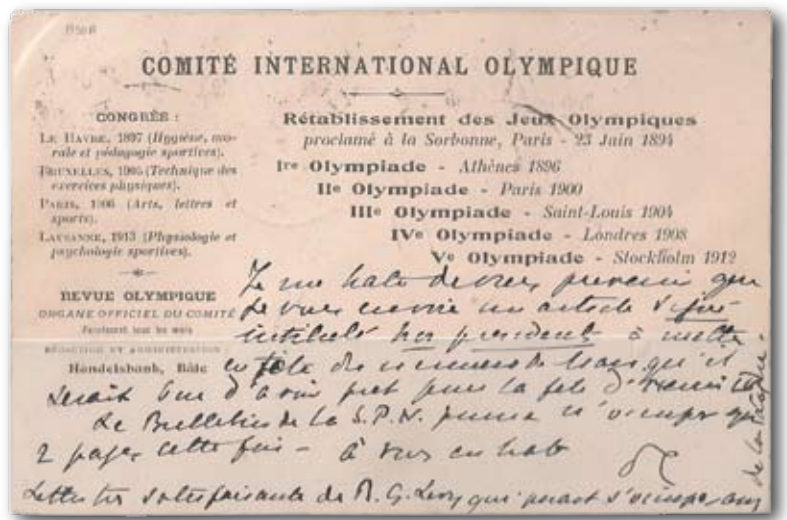 COMITÉ INTERNATIONAL OLYMPIQUE
CONGRÈS :
LE HAVRE, 1897 (Hygiène, mo-
rale et pédagogie sportives).
BRUXELLES, 1905 (Technique des
exercices physiques).
PARIS, 1906 (Arts, lettres et
sports).
LAUSANNE, 1913 (Physiologie et
psychologie sportives).
REVUE OLYMPIQUE
ORGANE OFFICIEL DU COMITÉ
Paraissant tous les mois
RÉDACTION ET ADMINISTRATION
Handelsbank, Bâle
Rétablissement des Jeux Olympiques
proclamé à la Sorbonne, Paris - 23 Juin 1894
Ire Olympiade - Athènes 1896
IIe Olympiade - Paris 1900
IIIe Olympiade - Saint-Louis 1904
IVe Olympiade - Londres 1908
Ve Olympiade - Stockholm 1912
Je me hate de vous prevenir que
je vous envoie un article
intitulé president à mettre
en tête du numero de qu'il
serait bon d'avoir pret pour la fete
Le Bulletin de la S.P.N. n'occupe que
2 pages cette fois - à vous en hate
Lettre tres satisfaisante de R. G. Levy qui s'occuper